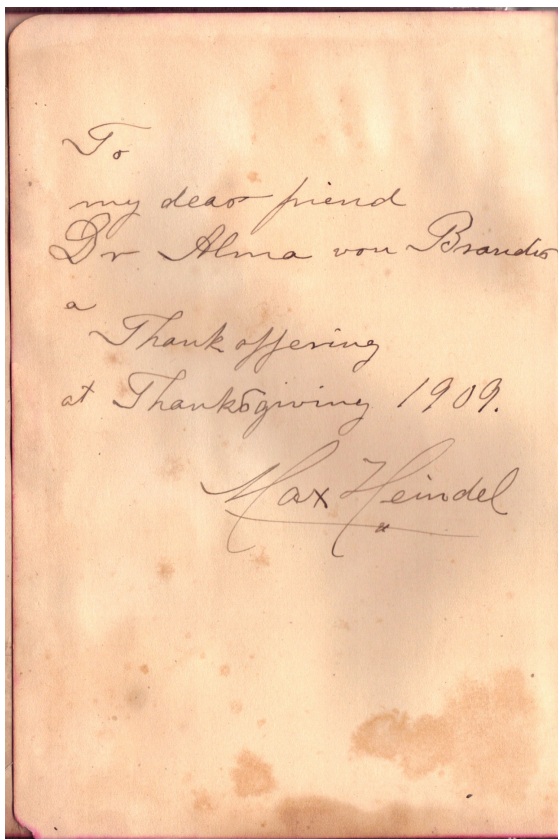 To
my dear friend
Dr Alma von Brandis
a
Thankoffering
at Thanksgiving 1909.
Max Heindel